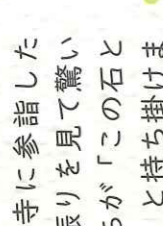 寺に参詣した
振りを見て驚い
らが「この石と
と持ち掛けま